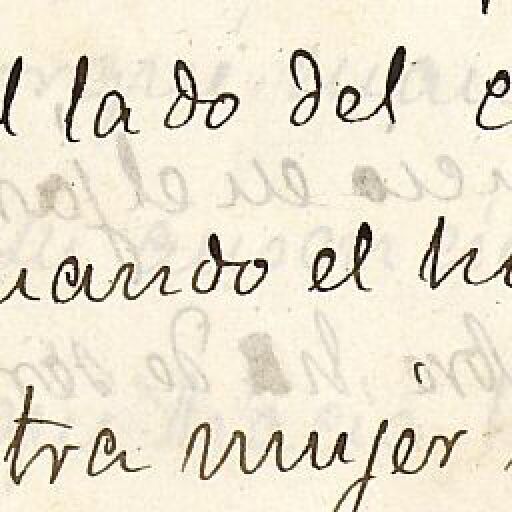 l lado del
uando el
tra mujer